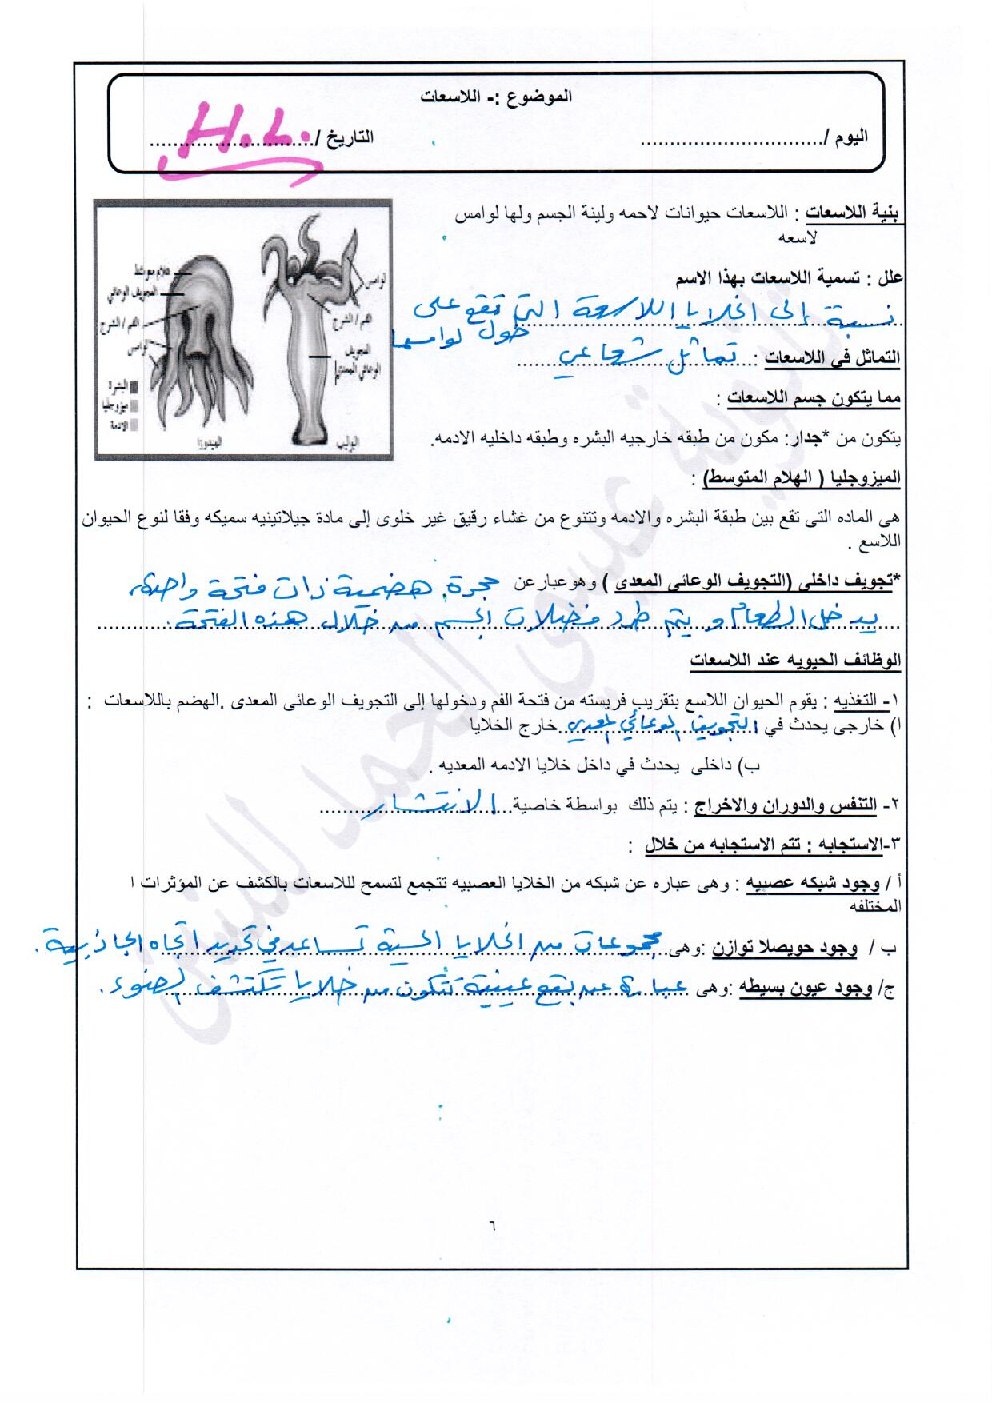 الموضوع :- اللاسعات
اليوم /................................ التاريخ /............................
H.L.
بنية اللاسعات : اللاسعات حيوانات لاحمه ولينة الجسم ولها لوامس
لاسعه
علل : تسمية اللاسعات بهذا الاسم
نسبة إلى الخلايا اللاسعة التي تقع على
طول لوامسها
التماثل فى اللاسعات : تماثل شعاعي
مما يتكون جسم اللاسعات :
يتكون من *جدار: مكون من طبقه خارجيه البشره وطبقه داخليه الادمه.
الميزوجليا ( الهلام المتوسط) :
هى الماده التى تقع بين طبقة البشره والادمه وتتنوع من غشاء رقيق غير خلوى إلى مادة جيلاتينيه سميكه وفقا لنوع الحيوان
اللاسع .
*تجويف داخلى (التجويف الوعائى المعدى ) وهو عبارعن حجرة هضمية ذات فتحة واحدة،
يدخل الطعام و يتم طرد فضلات الجسم من خلال هذه الفتحة.
الوظائف الحيويه عند اللاسعات
١- التغذيه : يقوم الحيوان اللاسع بتقريب فريسته من فتحة الفم ودخولها إلى التجويف الوعائى المعدى .الهضم باللاسعات :
ا) خارجى يحدث في التجويف الوعائي المعدي خارج الخلايا
ب) داخلى يحدث في داخل خلايا الادمه المعديه .
٢- التنفس والدوران والاخراج : يتم ذلك بواسطة خاصية الانتشار
٣-الاستجابه : تتم الاستجابه من خلال :
أ / وجود شبكه عصبيه : وهى عباره عن شبكه من الخلايا العصبيه تتجمع لتسمح للاسعات بالكشف عن المؤثرات ا
المختلفه
ب / وجود حويصلا توازن :وهى مجموعات من الخلايا الحسية تساعد في تحديد اتجاه الجاذبية.
ج/ وجود عيون بسيطه :وهى عبارة عن بقع عينية تتكون من خلايا تكتشف الضوء.
هلام متوسط
التجويف الوعائي
الفم / الشرج
لوامس
البشرة
ميزوجليا
الادمة
الميدوزا
لوامس
الفم / الشرج
التجويف
الوعائي المعدي
البوليب
زاوية عيسى الحمد للنسخ
٦